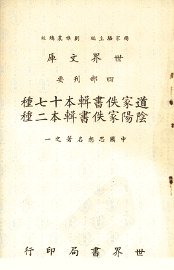 楊家駱主編　劉雅農總校
世界文庫
四部刊要
道家佚書輯本十七種
陰陽家佚書輯本二種
中國思想名著之一
世界書局印行